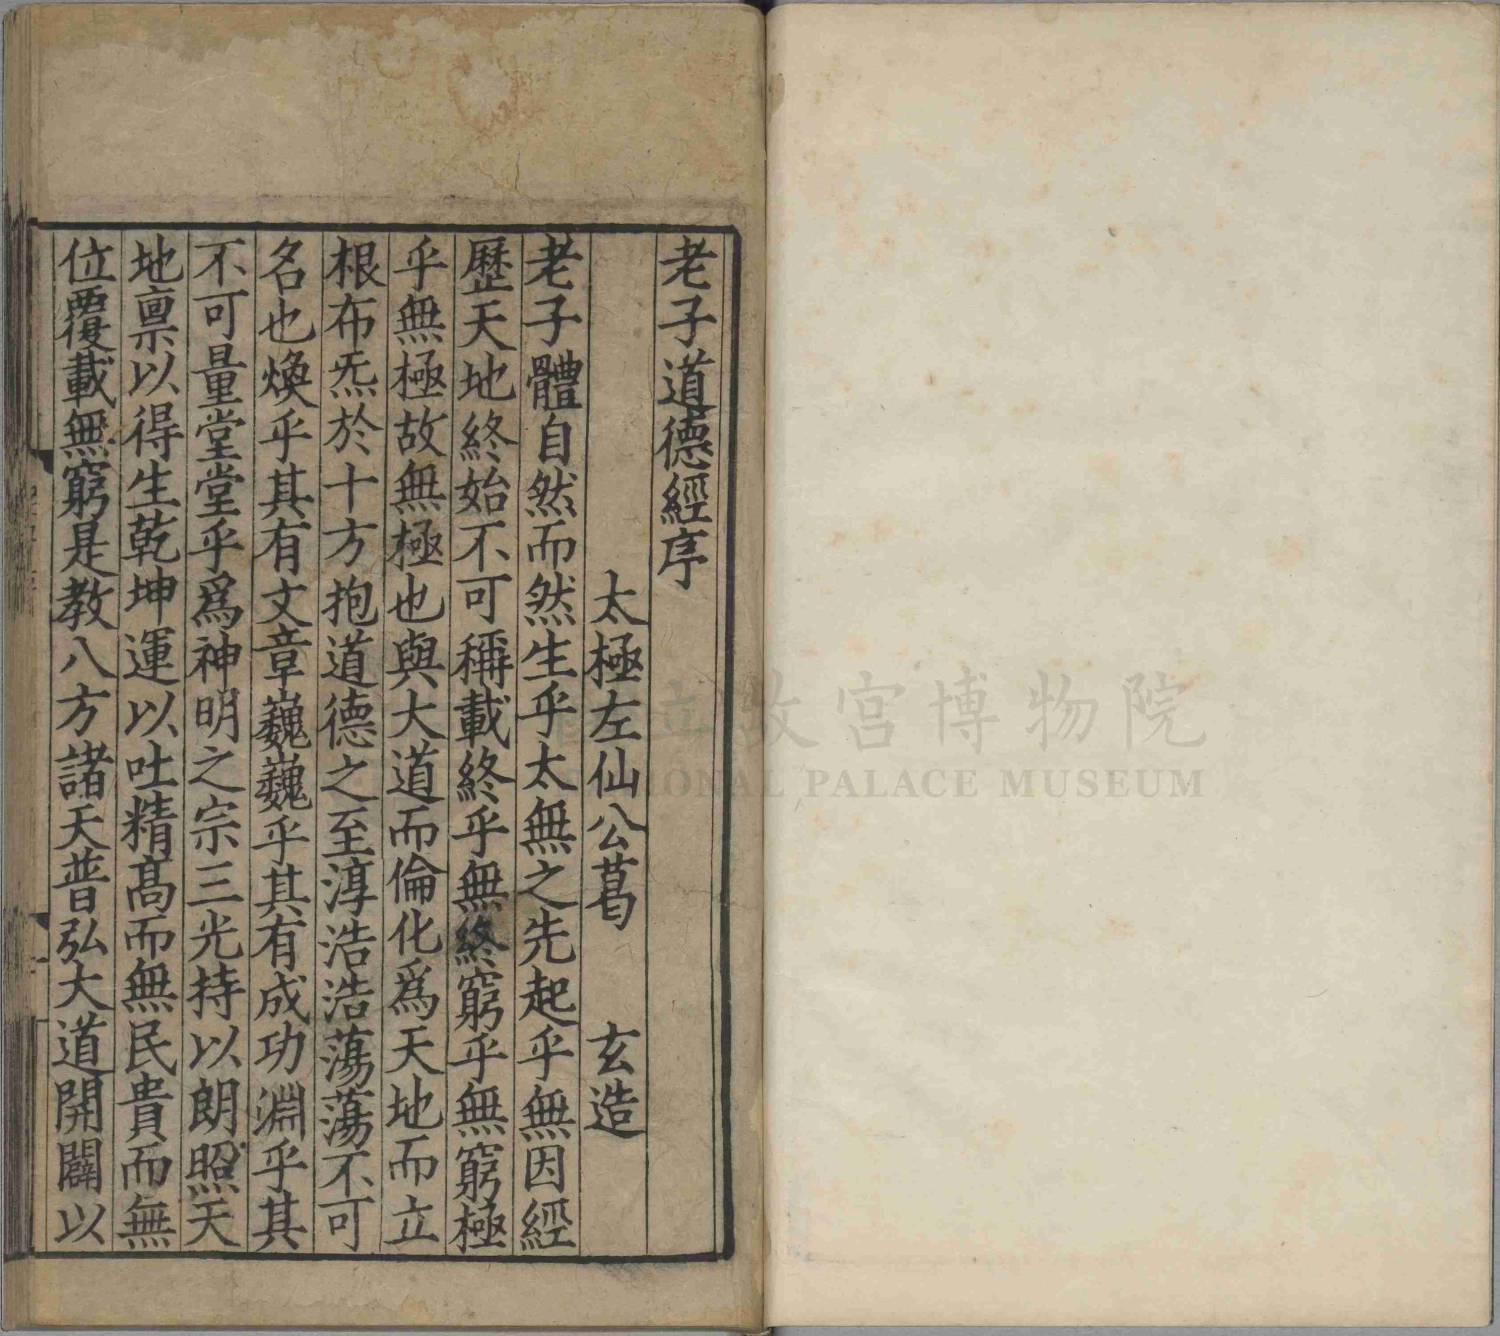 老子道德經序
太極左仙公葛 玄造
老子體自然而然生乎太無之先起乎無因經
歷天地終始不可稱載終乎無終窮乎無窮極
乎無極故無極也與大道而倫化爲天地而立
根布炁於十方抱道德之至淳浩浩蕩蕩不可
名也煥乎其有文章巍巍乎其有成功淵乎其
不可量堂堂乎爲神明之宗三光持以朗照天
地禀以得生乾坤運以吐精高而無民貴而無
位覆載無窮是教八方諸天普弘大道開闢以
立故宮博物院
NATIONAL PALACE MUSEUM